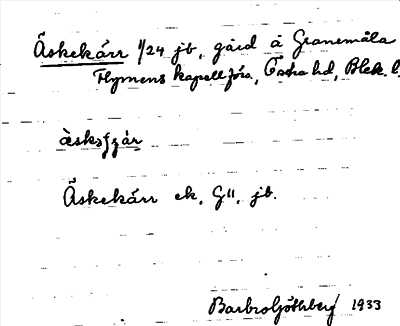 Äskekärr 1/24 jb, gård å Granemåla
Flymens kapellförs., Östra hd, Blek. l.
Äskekärr ek, GII, jb.
Barbro Göthberg 1933